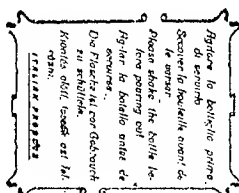 Agitare la bottiglia prima
di servirlo
Secouer la bouteille avant de
le verser
Please shake the bottle be-
fore pouring out
Agitar la botella antes de
Die Flasche ist vor Gebrauch
zu schütteln.
ITALIAN PRODUCE